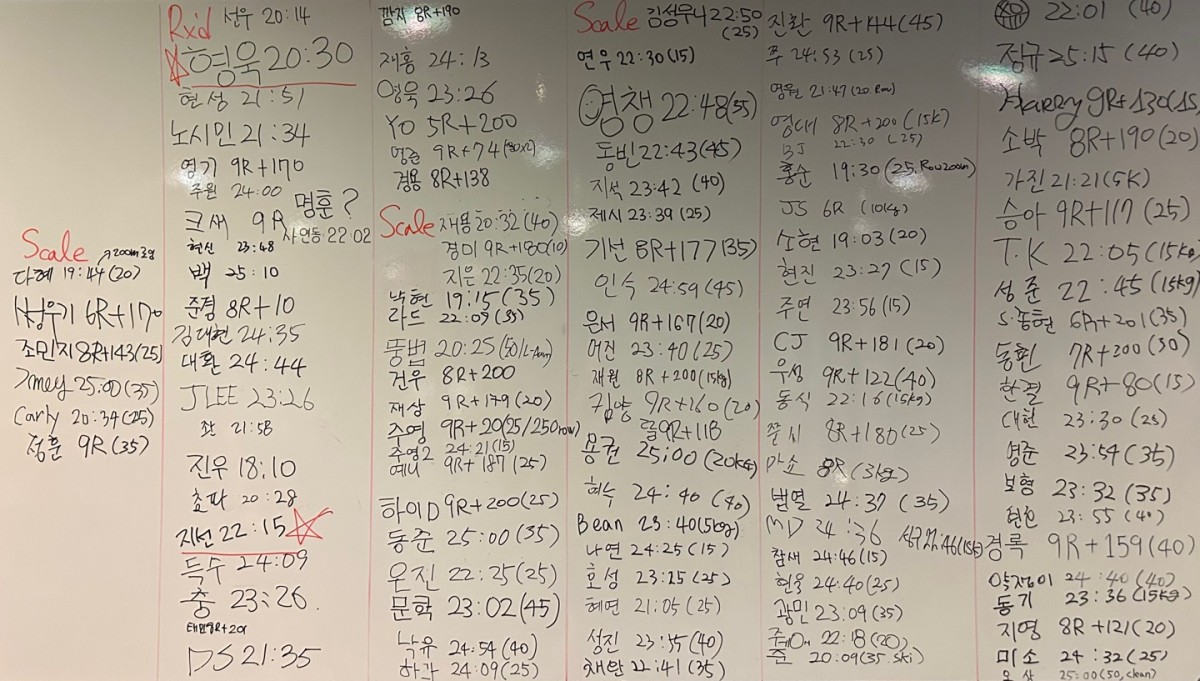 Scale
200m로잉
다혜 19:44(20)
성우기 6R+170
조민지 8R+143(25)
Jmey 25:00(35)
Carly 20:34(25)
정훈 9R(35)
Rx'd 성우 20:14
형욱 20:30
현성 21:51
노시민 21:34
영기 9R+170
주원 24:00
명훈?
크새 9R
사연동:22:02
현신 23:48
백 25:10
준경 8R+10
김대현 24:35
대환 24:44
JLEE 23:26
좌 21:58
진우 18:10
초파 20:28
지선 22:15
득수 24:09
충 23:26
태민 8R+201
DS 21:35
깜지 8R+190
재홍 24:13
영욱 23:26
YO 5R+200
영준 9R+74(80x2)
경용 8R+138
Scale 재용 20:32(40)
경미 9R+180(10)
지은 22:35(20)
낙현 19:15(35)
라드 22:09(35)
뚱범 20:25(50/L-Arm)
건우 8R+200
재상 9R+179(20)
주영 9R+20(25/250row)
주영2 24:21(15)
예니 9R+187(25)
하이D 9R+200(25)
동준 25:00(35)
은진 22:25(25)
문학 23:02(45)
낙유 24:54(40)
하각 24:09(25)
Scale 김성우니 22:50
(25)
연우 22:30(15)
영챙 22:48(35)
동빈 22:43(45)
지석 23:42(40)
제시 23:39(25)
기선 8R+177(35)
인숙 24:59(45)
윤서 9R+167(20)
어진 23:40(25)
재원 8R+200(15kg)
김양 9R+160(20)
9R+118
용권 25:00(20kg)
혜숙 24:40(40)
Bean 23:40(5kg)
나연 24:25(15)
호성 23:25(25)
혜연 21:05(25)
성진 23:55(40)
채안 22:41(35)
진환 9R+144(45)
쭈 24:53(25)
명원 21:47(20.Row)
영대 8R+200(15K)
BJ 22:30(25)
홍순 19:30(25.Row200m)
JS 6R(10kg)
소현 19:03(20)
현진 23:27(15)
주연 23:56(15)
CJ 9R+181(20)
우성 9R+122(40)
동식 22:16(15kg)
쭌시 8R+180(25)
마쇼 8R(3kg)
범열 24:37(35)
MD 24:36
성규 22:46(15)
참새 24:46(15)
현웅 24:40(25)
광민 23:09(35)
22:18(20)
준 20:09(35.ski)
22:01(40)
정규 25:15(40)
Harry 9R+130(15)
소박 8R+190(20)
가진 21:21(5K)
승아 9R+117(25)
T.K 22:05(15kg)
성준 22:45(15kg)
S.동현 6R+201(35)
동환 7R+200(30)
한결 9R+80(15)
대현 23:30(25)
영준 23:54(35)
보형 23:32(35)
현진 23:55(40)
경록 9R+159(40)
약쟁이 24:40(40)
동기 23:36(15kg)
지영 8R+121(20)
미소 24:32(25)
25:00(50,clean)